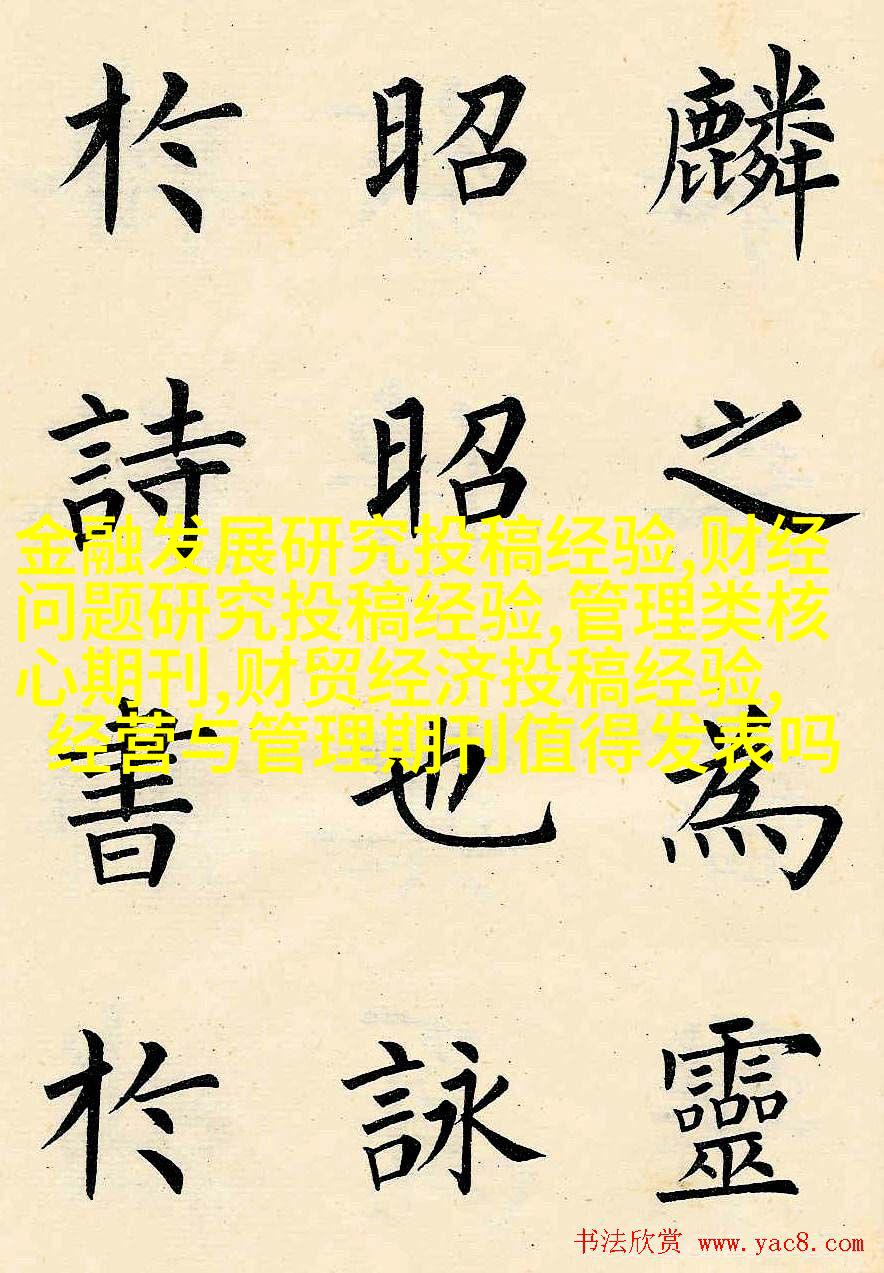 麟之為靈
昭昭也詠
於詩書於
金融发展研究投稿经验,财经
问题研究投稿经验,管理类核
心期刊,财贸经济投稿经验,
经营与管理期刊值得发表吗
书法欣赏 www.yac8.com